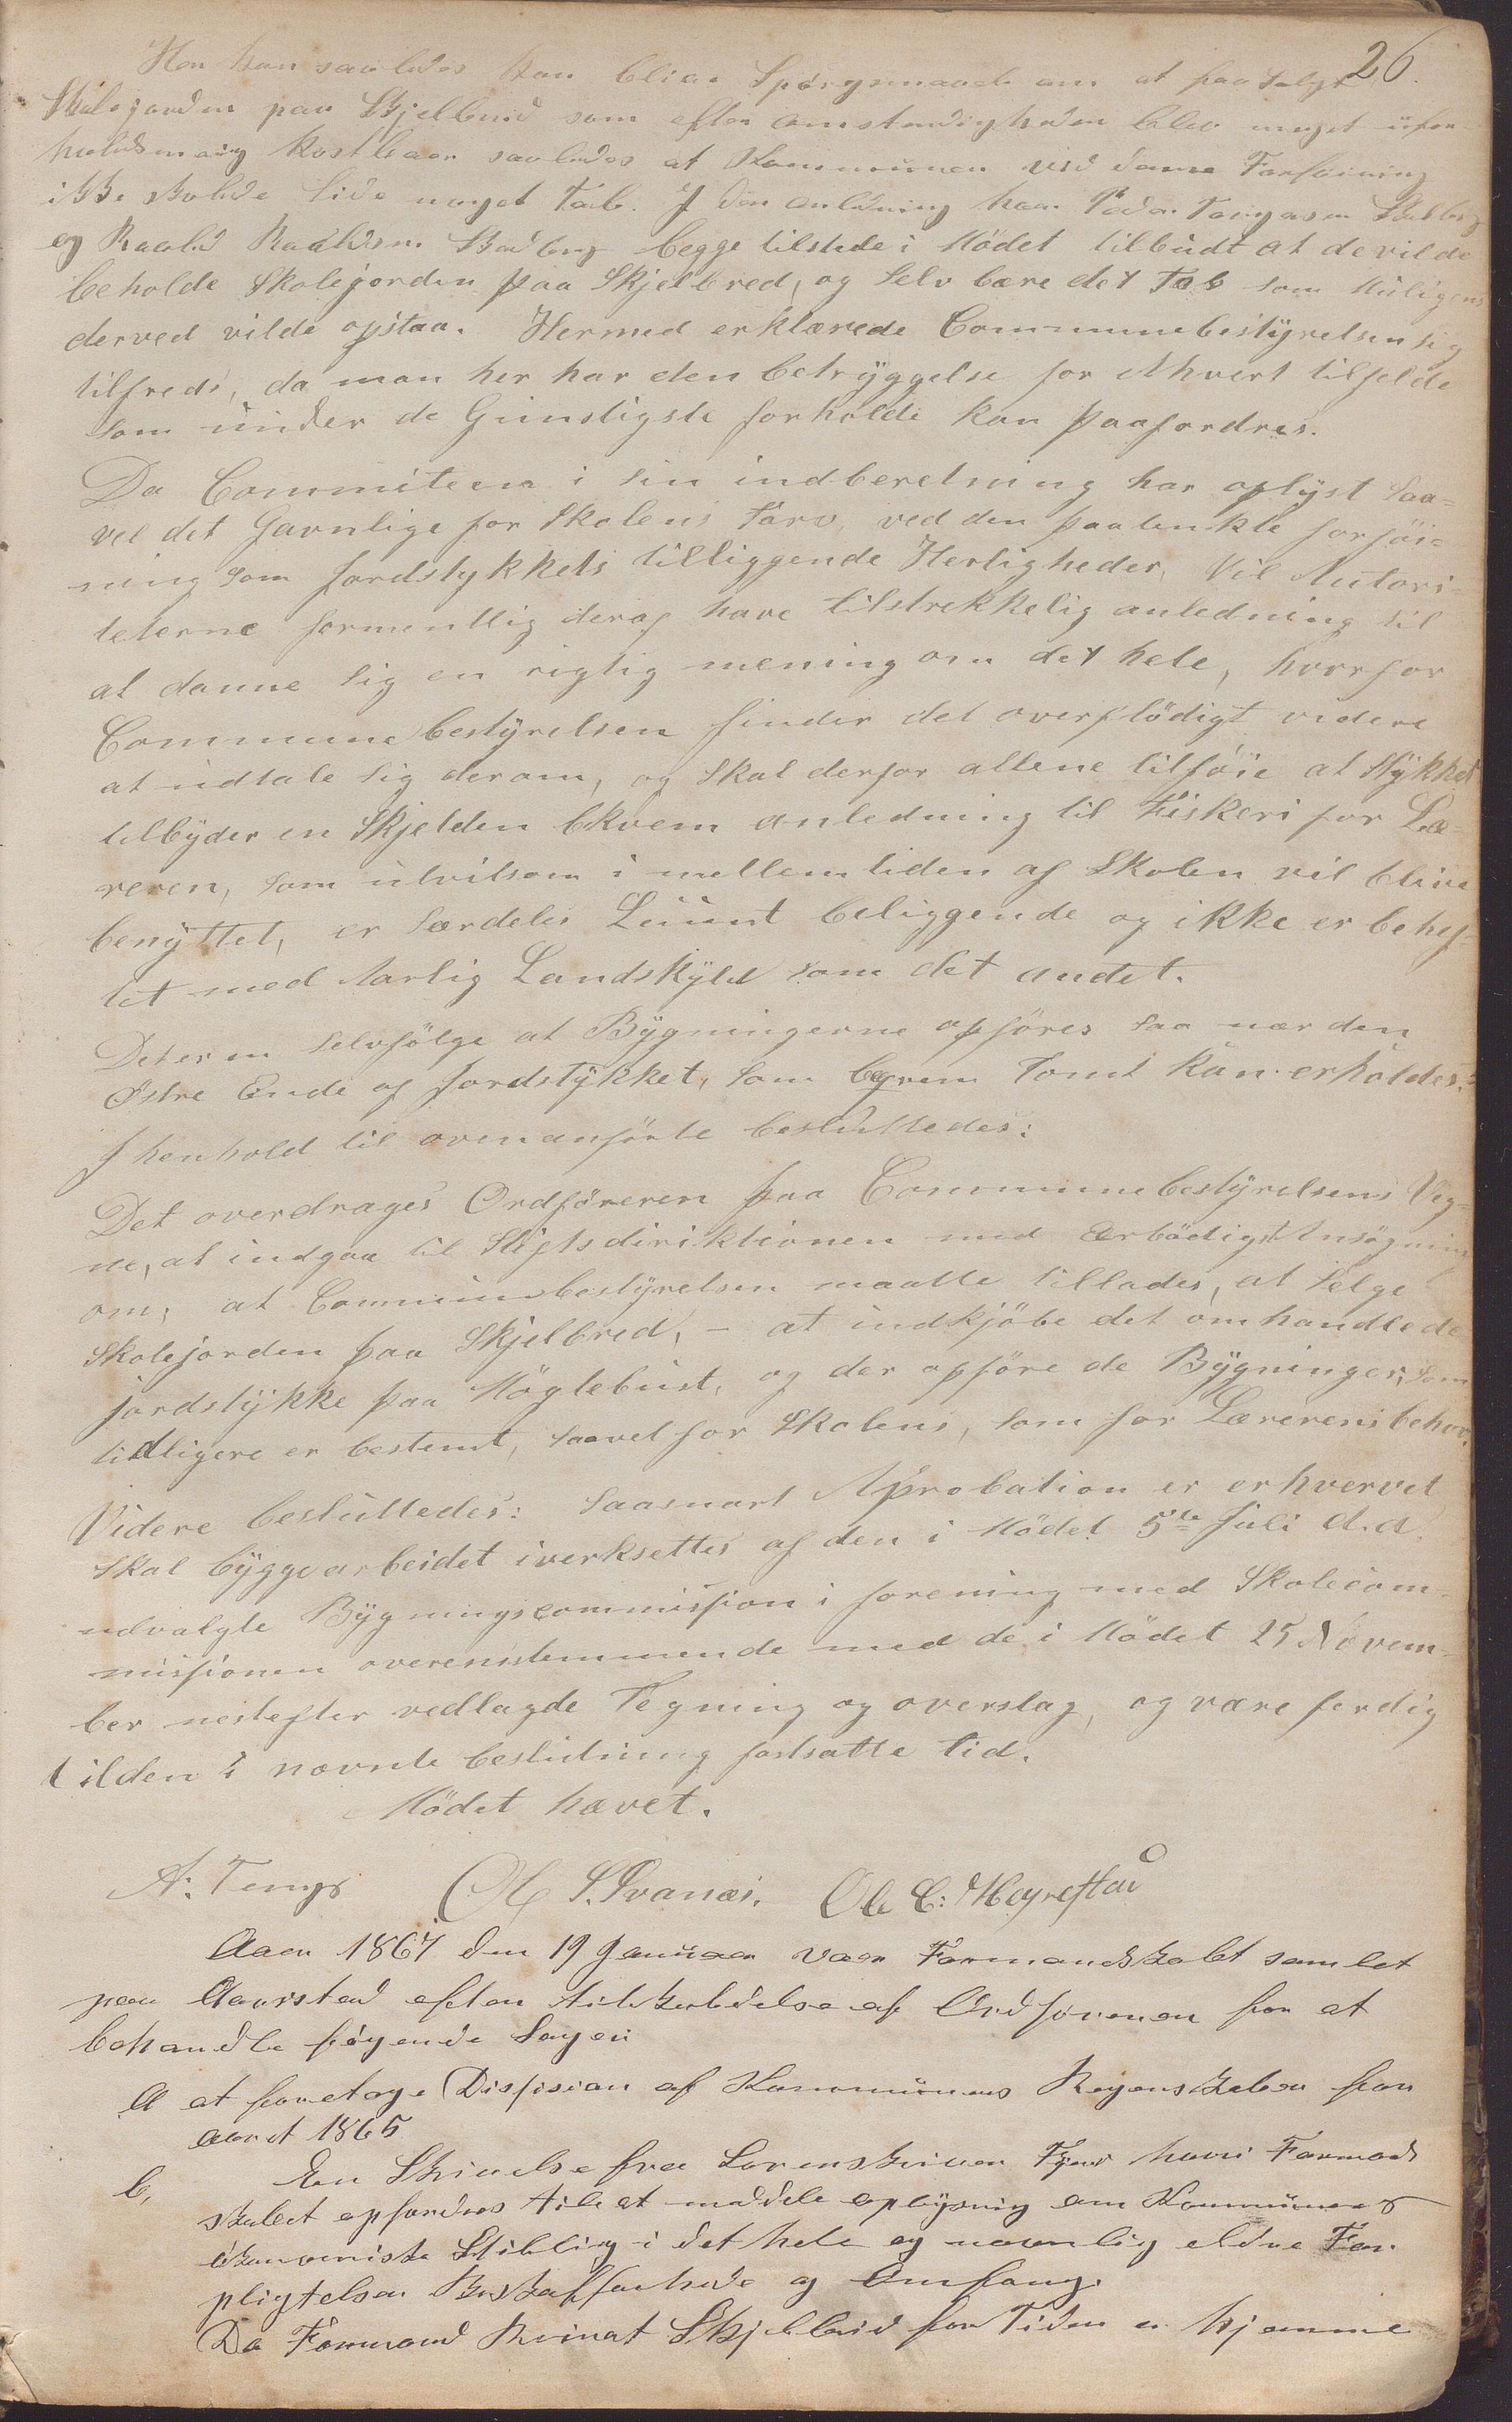 26.
Her kan saaledes kun blive Spørgsmaal om at faa Solgt
Skolejorden paa Skjelbred som efter omstendigheden blev meget ufor-
holdsmæsig Kostbaar saaledes at Kommunen ved denne Forføining
ikke skulde lide noget Tab. I den anledning har Peder
og Raald Raaldsen begge tilstede i Mödet tilbudt at de vilde
beholde Skolejorden paa Skjelbred, og Selv bære det Tab som Muligens
derved vilde opstaa. Hermed erklærede Communebestyrelsen sig
tilfreds, da man her har den betryggelse for Ethvert tilfelde
som under de Gunstigste forholde kan paafordres.
Da Commiteen i sin indberetning har oplyst saa-
vel det Gavnlige for Skolens Tarv, ved den paatenkte forföi-
ning som Jordstykkets tilliggende Herligheder, Vil Autori-
teterne formentlig deraf have tilstrekkelig anledning til
at danne sig en rigtig mening om det hele, hvorfor
Communebestyrelsen finder det overflödigt videre
at udtale sig derom, og skal derfor allene tilföie at Stykket
tilbyder en Skjelden bkvem anledning til Fiskeri for Læ-
reren, som utvilsom i mellemtiden af Skolen vil blive
benyttet, er særdeles Luunt beliggende og ikke er behef-
tet med Aarlig Landskyld som det andet.
Det er en selvfölge at Bygningerne opföres saa nær den
Østre Ende af Jordstykket, som beqvem Tomt kan erholdes.
I henhold til ovenanförte besluttedes:
Det overdrages Ordföreren paa Communebestyrelsens Veg-
ne, at indgaa til Stiftsdirektionen med Ærbödigst Ansögning
om, at Communebestyrelsen maatte tillades, at Selge
Skolejorden paa Skjelbred, – at indkjöbe det omhandlede
jordstykke paa Möglebust, og der opföre de Bygninger, som
tidligere er bestemt, saavel for Skolens, som for Lærerens behov.
Videre besluttedes: Saasnart Aprobation er erhvervet
skal byggearbeidet iverksettes af den i Mödet 5te Juli d.a.
udvalgte Bygningscommission i forening med Skolecom-
missionen overensstemmende med de i Mödet 25 Novem-
ber nestefter vedlagde Tegning og overslag, og være ferdig
tilden i nævnte beslutning fastsatte tid.
Mödet hævet.
A. Tengs Ole S. Svanæs. Ole C: Høyrestad
Aaer 1867 den 19 Januaer vaer Formandskabet samlet
paa Aarstad efter tilkaldelse af Ordføreren for at
behandle følgende Sager
A at foretage Dicision af Kommunens Regenskaber for
aaret 1865
b, En Skrivelse fra Sorenskriver hvori Formand
skabet opfordres til at meddele oplysning om Kommunens
økonomiske Stilling i det hele og navnlig eldre For
pligtelser Beskaffenhed og Omfang.
Da Formand Reinert Skjelbred for Tiden er hjemme